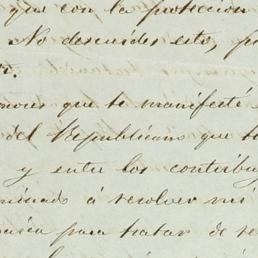 que con la proteccion
No descuides esto, p
r.
que te manifesté
del Republicano que t
y entre los contribu
minado á resolver mi
para tratar de re